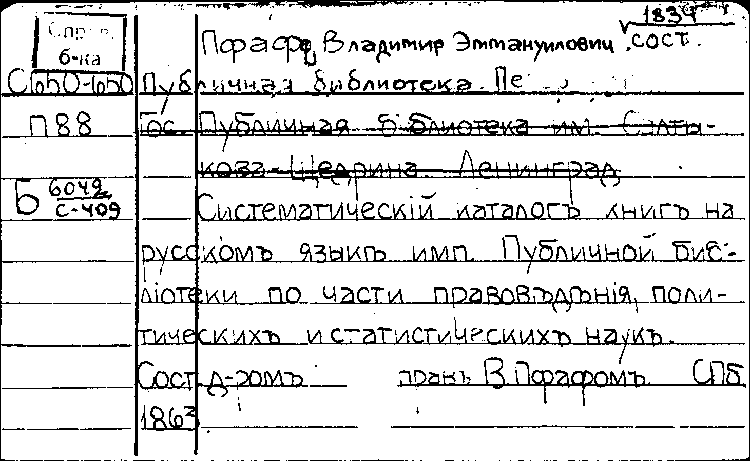 1834
Справ.
б-ка
Пфафф, Владимир Эммануилович, сост.
Публичная библиотека. Пе
П88
Гос. Публичная Библиотека им. Салты-
кова-Щедрина. Ленинград
Б 6049
С-409
Систематическій каталогъ книгъ на
русскомъ языкѣ имп. Публичной биб-
ліотеки по части правовѣдѣнія, поли-
тическихъ и статистическихъ наукъ.
Сост. д-ромъ правъ В. Пфафомъ СПб
1863